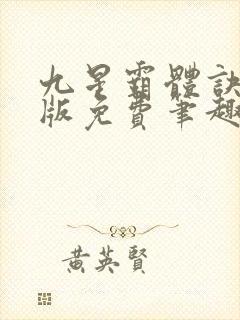 九星霸體訣
版免費筆趣
黃英賢